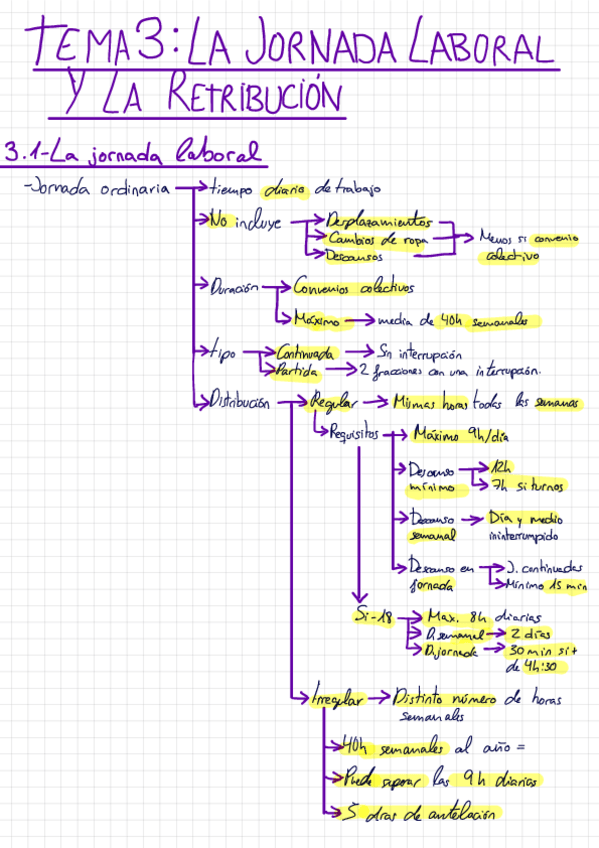 TEMA 3: LA JORNADA LABORAL
Y LA RETRIBUCIÓN
3.1-La jornada laboral
-Jornada ordinaria → tiempo diario de trabajo
→ No incluye → Desplazamientos
→ Cambios de ropa → Menos si convenio
→ Descansos colectivo
→ Duración → Convenios colectivos
→ Máximo → media de 40h semanales
→ tipo → Continuada → Sin interrupción
→ Partida → 2 fracciones con una interrupción.
→ Distribución → Regular → Mismas horas todas las semanas
→ Requisitos → Máximo 9h/día
→ Descanso → 12h
mínimo → 7h si turnos
→ Descanso → Día y medio
semanal ininterrumpido
→ Descanso en → J. continuadas
jornada → Mínimo 15 min
Si -18 → Max. 8h diarias
→ D. semanal → 2 días
→ D. jornada → 30 min si +
de 4h:30
→ Irregular → Distinto número de horas
semanales
→ 40h semanales al año =
→ Puede superar las 9h diarias
→ 5 días de antelación